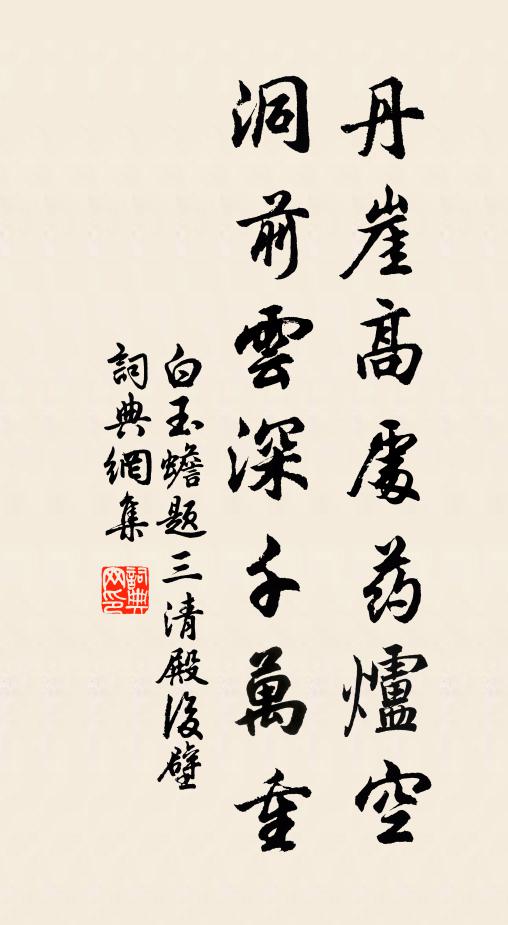 丹崖高處药爐空
洞前雲深千萬重
白玉蟾题三清殿後壁
詞典網集
詞典网印